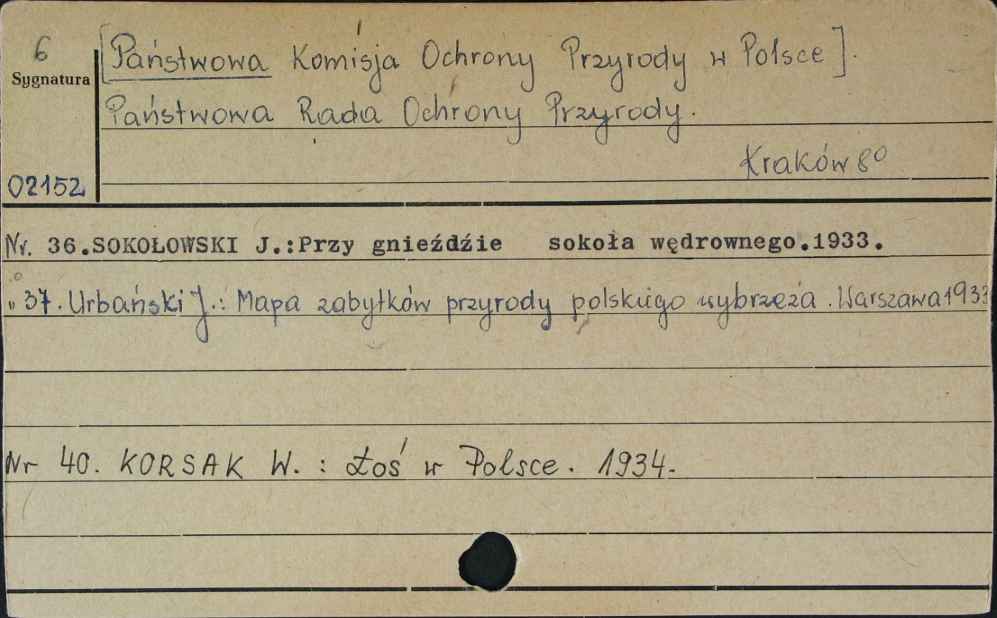 6
Sygnatura
[Państwowa Komisja Ochrony Przyrody w Polsce].
Państwowa Rada Ochrony Przyrody.
Kraków 8°
02152
Nr. 36.SOKOŁOWSKI J.:Przy gnieździe sokoła wędrownego.1933.
" 37. Urbański J.: Mapa zabytków przyrody polskiego wybrzeża. Warszawa 1933
Nr 40. KORSAK W. : Łoś w Polsce. 1934.